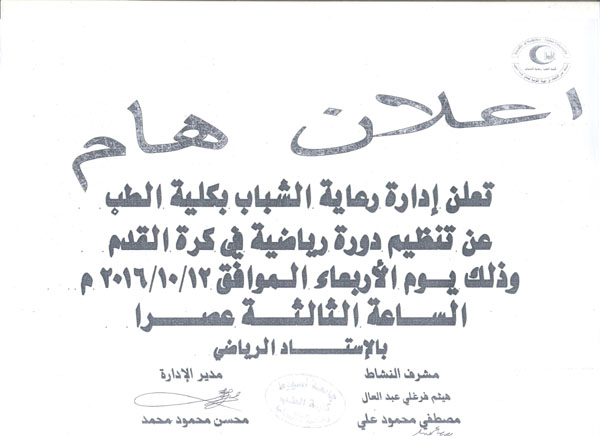 اعلان هام
تعلن إدارة رعاية الشباب بكلية الطب
عن تنظيم دورة رياضية في كرة القدم
وذلك يوم الأربعاء الموافق ٢٠١٦/١٠/١٢ م
الساعة الثالثة عصرا
بالإستاد الرياضي
مشرف النشاط
مدير الإدارة
هيثم فرغلي عبد العال
مصطفي محمود علي
محسن محمود محمد